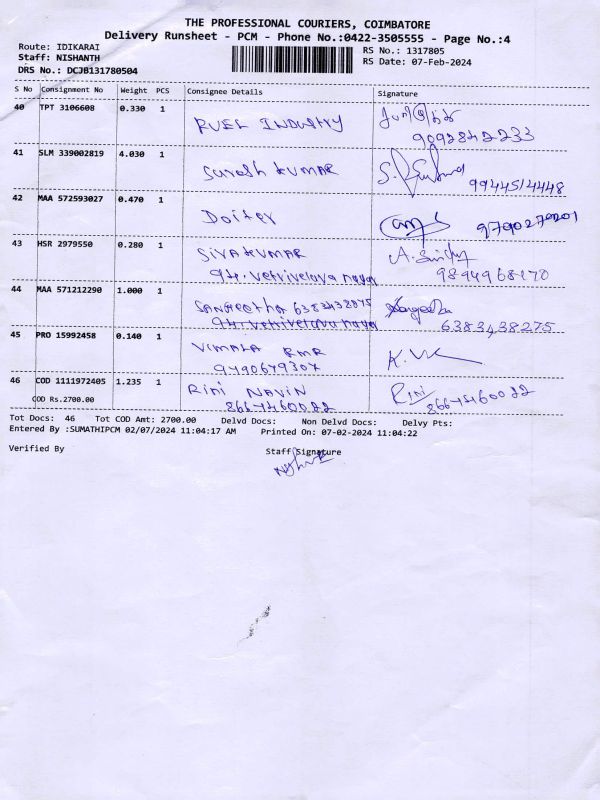 THE PROFESSIONAL COURIERS, COIMBATORE
Delivery Runsheet - PCM - Phone No.:0422-3505555 - Page No.:4
Route: IDIKARAI
Staff: NISHANTH
DRS No.: DCJB131780504
RS No.: 1317805
RS Date: 07-Feb-2024
S No Consignment No Weight PCS Consignee Details Signature
40 TPT 3106608 0.330 1 FUEL INDUSTRY
9092842233
41 SLM 339002819 4.030 1 Suresh KUMAR 9944514448
42 MAA 572593027 0.470 1 9790270201
43 HSR 2979550 0.280 1 SIVAKUMAR A.
94. Vetrivelava nagar 9894968170
44 MAA 571212290 1.000 1 SANGEETHA 6383432875 Sangeetha
94. Vetrivelava nagar 6383438275
45 PRO 15992458 0.140 1 VIMALA RMR K.
9790679307
46 COD 1111972405 1.235 1 RINI NAVIN Rini
COD Rs.2700.00 8667460022 8667460022
Tot Docs: 46 Tot COD Amt: 2700.00 Delvd Docs: Non Delvd Docs: Delvy Pts:
Entered By :SUMATHIPCM 02/07/2024 11:04:17 AM Printed On: 07-02-2024 11:04:22
Verified By Staff Signature